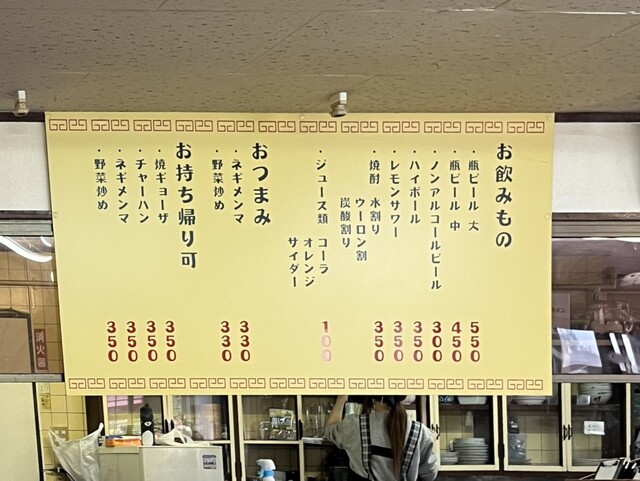 お飲みもの
・瓶ビール 大 550
・瓶ビール 中 450
・ノンアルコールビール 300
・ハイボール 350
・レモンサワー 350
・焼酎 水割り 350
ウーロン割
炭酸割り
・ジュース類 コーラ 100
オレンジ
サイダー
おつまみ
・ネギメンマ 330
・野菜炒め 330
お持ち帰り可
・焼ギョーザ 350
・チャーハン 350
・ネギメンマ 350
・野菜炒め 350
消火器